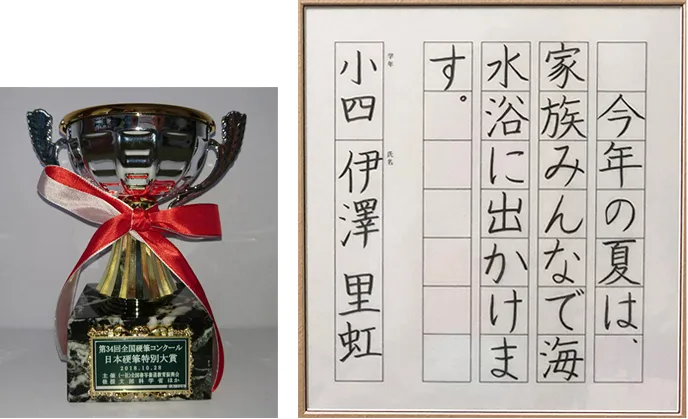 第34回全国硬筆コンクール
日本硬筆特別大賞
2018.10.28
主催 (一社)全国書写書道教育振興会
後援 文部科学省 ほか
今年の夏は、
家族みんなで海
水浴に出かけま
す。
学年
小四
氏名
伊澤 里虹